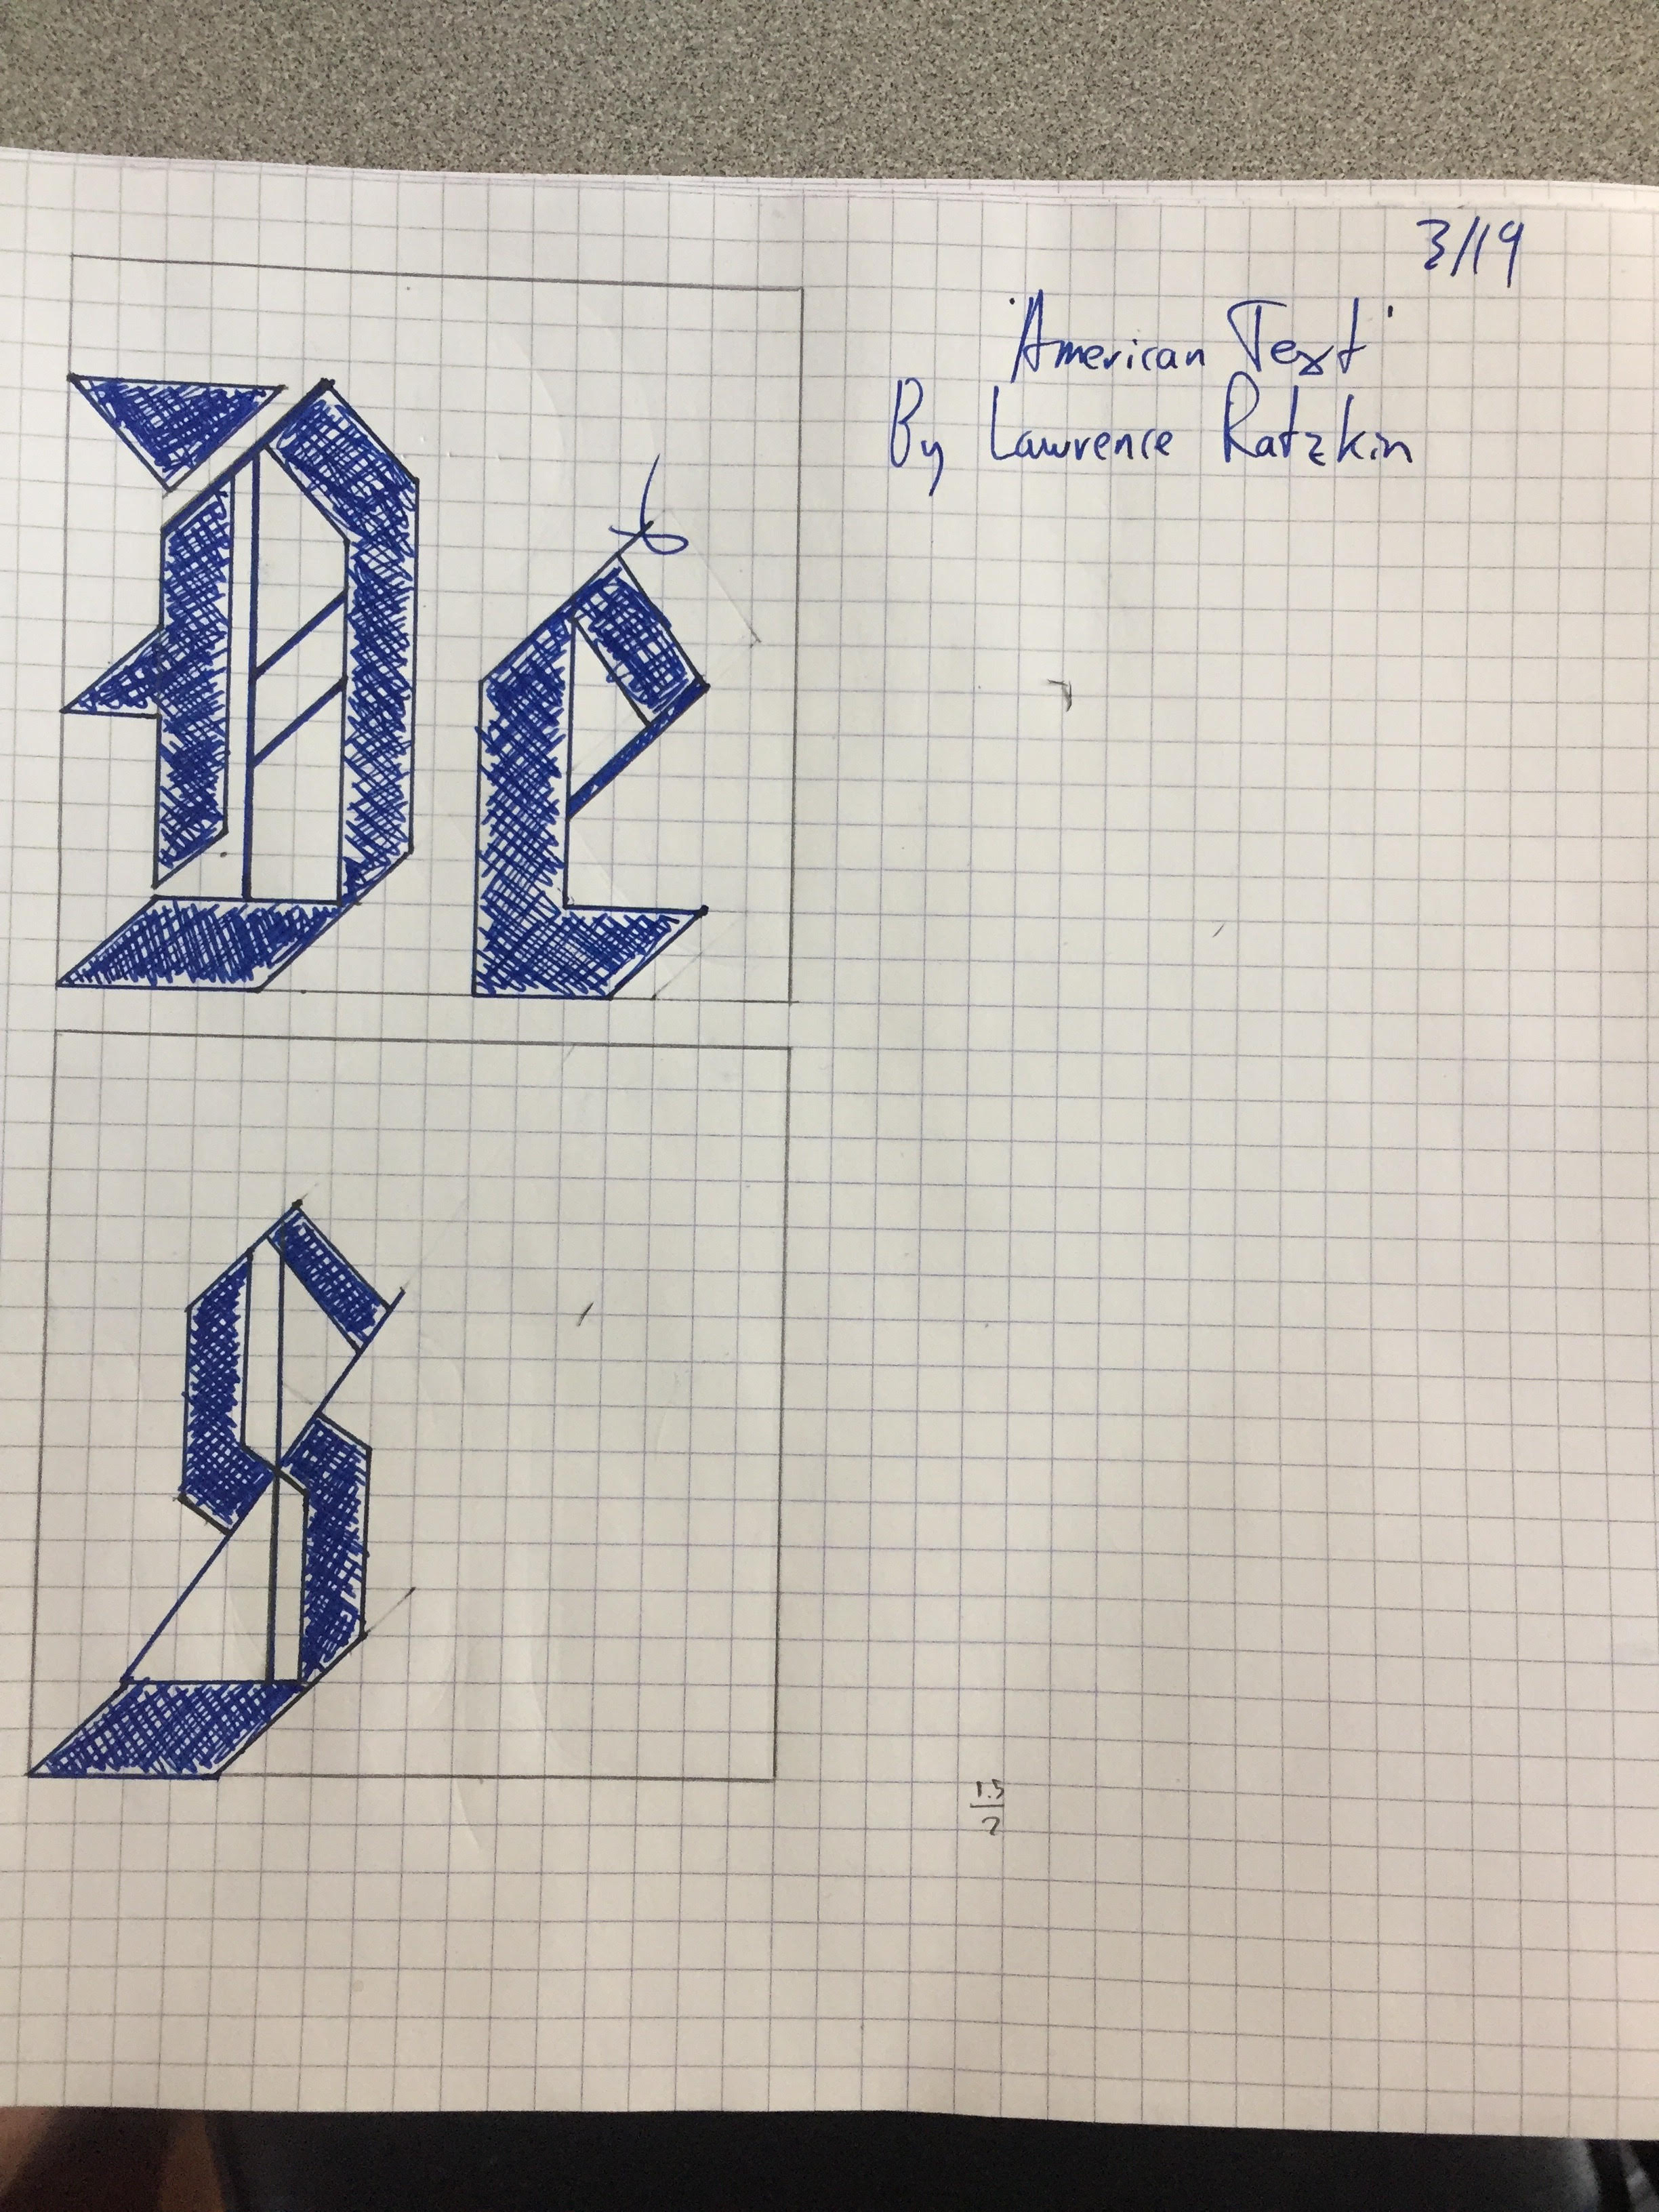 3/19
'American Text'
By Lawrence Ratzkin
De
S
1.5
2